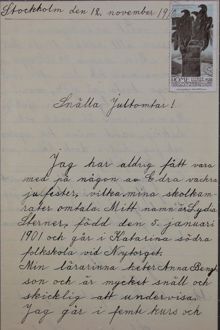 Stockholm den 12. november 19
Snälla Jultomtar!
Jag har aldrig fått vara
med på någon av Edra vackra
julfester, vilka mina skolkam-
rater omtala. Mitt namn är Lydia
Sterner, född den 5. januari
1901 och går i Katarina södra
folkskola vid Nytorget.
Min lärarinna heter Anna Bengt
son och är mycket snäll och
skicklig att undervisa.
Jag går i femte kurs och